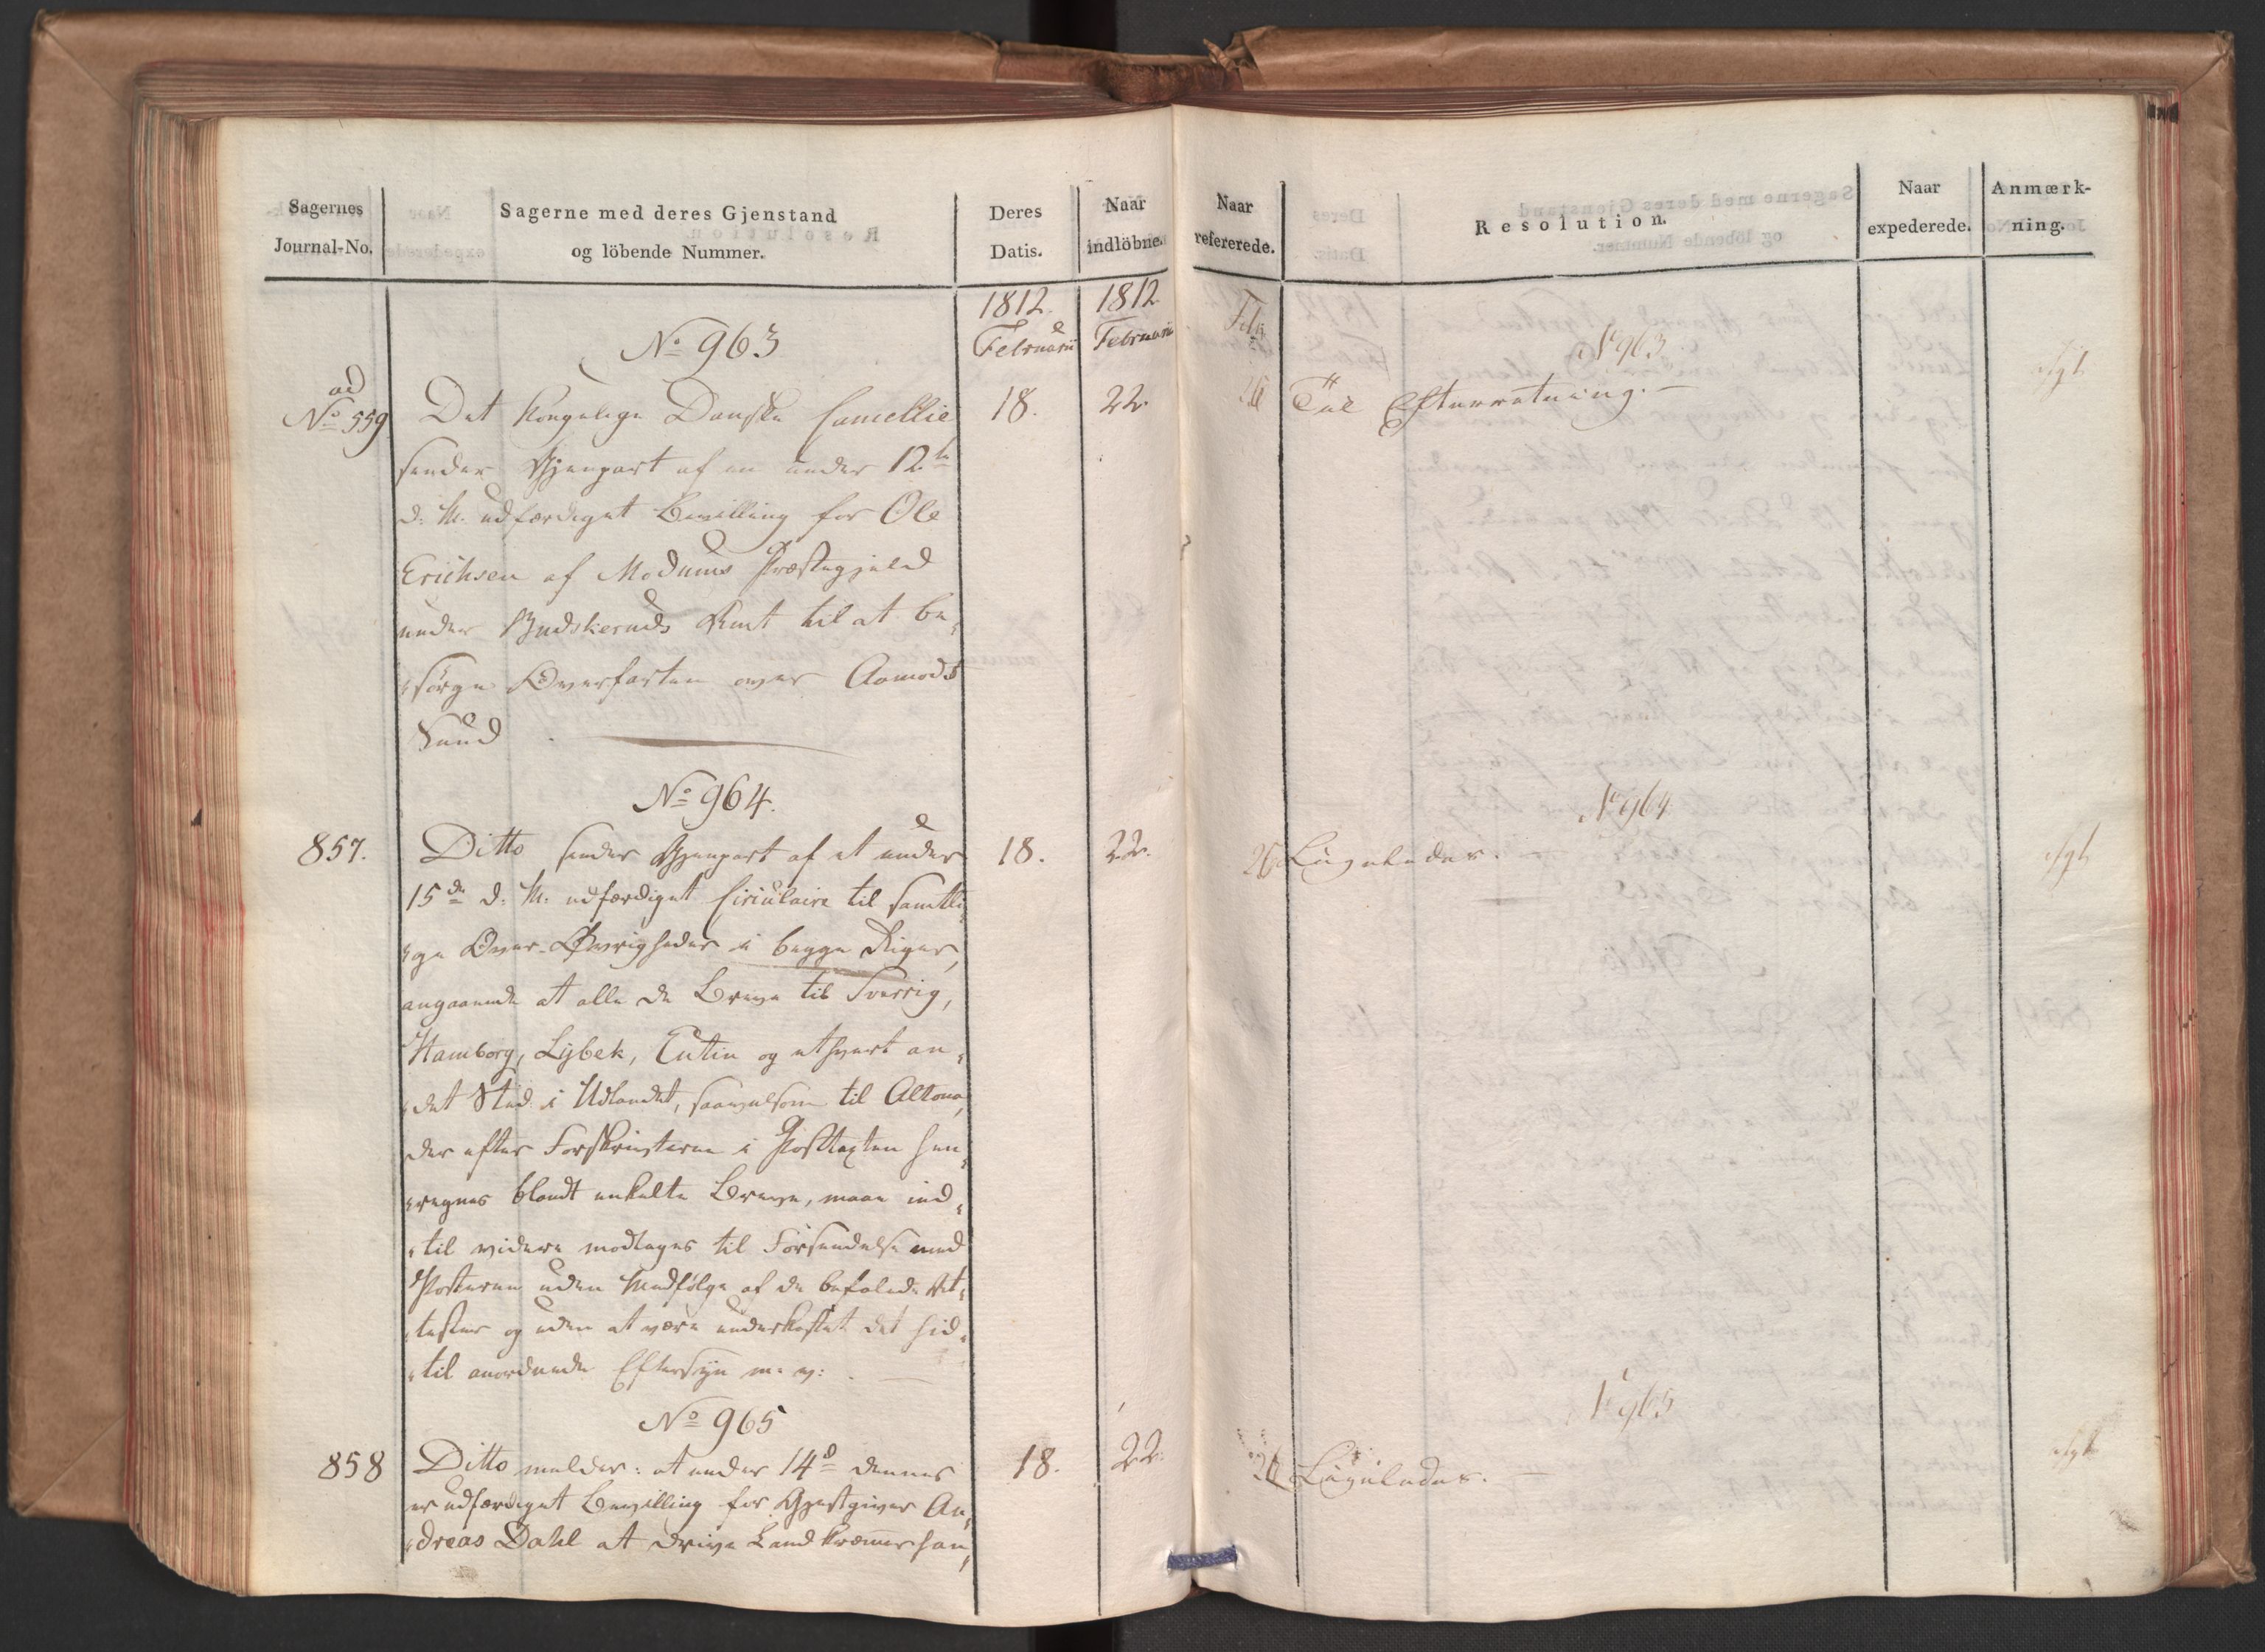 Sagernes
Journal-No.
Sagerne med deres Gjenstand
og löbende Nummer.
Deres
Datis.
Naar
indlöbne.
1812.
Februarii
1812
Februarii
No 963
ad
No 559
Det kongelige Danske Cancellie
18.
22.
sender Gjenpart af en under 12te
d: M: udfærdiget Bevilling for Ole
Erichsen af Modums Præstegjeld
under Budskeruds Amt til at be¸
¸sörge Overfarten over Aamodt
Sund
No 964.
857.
Ditto sender Gjenpart af et under
18.
22.
15de d: M: udfærdiget Circulaire til samtli¸
¸ge Over-Øvrigheder i begge Riger,
angaaende at alle de Breve til Sverrig,
Hamborg, Lybek, Eutin og ethvert an¸
¸det Sted i Udlandet, saavelsom til Altona,
der efter Forskrivterne i Posttaxten hen¸
¸regnes blandt enkelte Breve, maae ind¸
¸til videre modtages til Forsendelse med
Posterne uden Medfölge af de befalede At¸
¸tester og uden at være underkastet det hid¸
¸til anordnede Eftersyn m: v:
No 965
858
Ditto melder: at under 14d dennes
18.
22.
er udfærdiget Bevilling for Gjestgiver An¸
¸dreas Dahl at drive Landkræmmerhan¸
Naar
refererede.
Resolution.
Naar
expederede.
Anmærk-
ning.
Febr.
No 963
26
Til Efterretning.
No 964
26
Ligeledes.
No 965
26
Ligeledes.